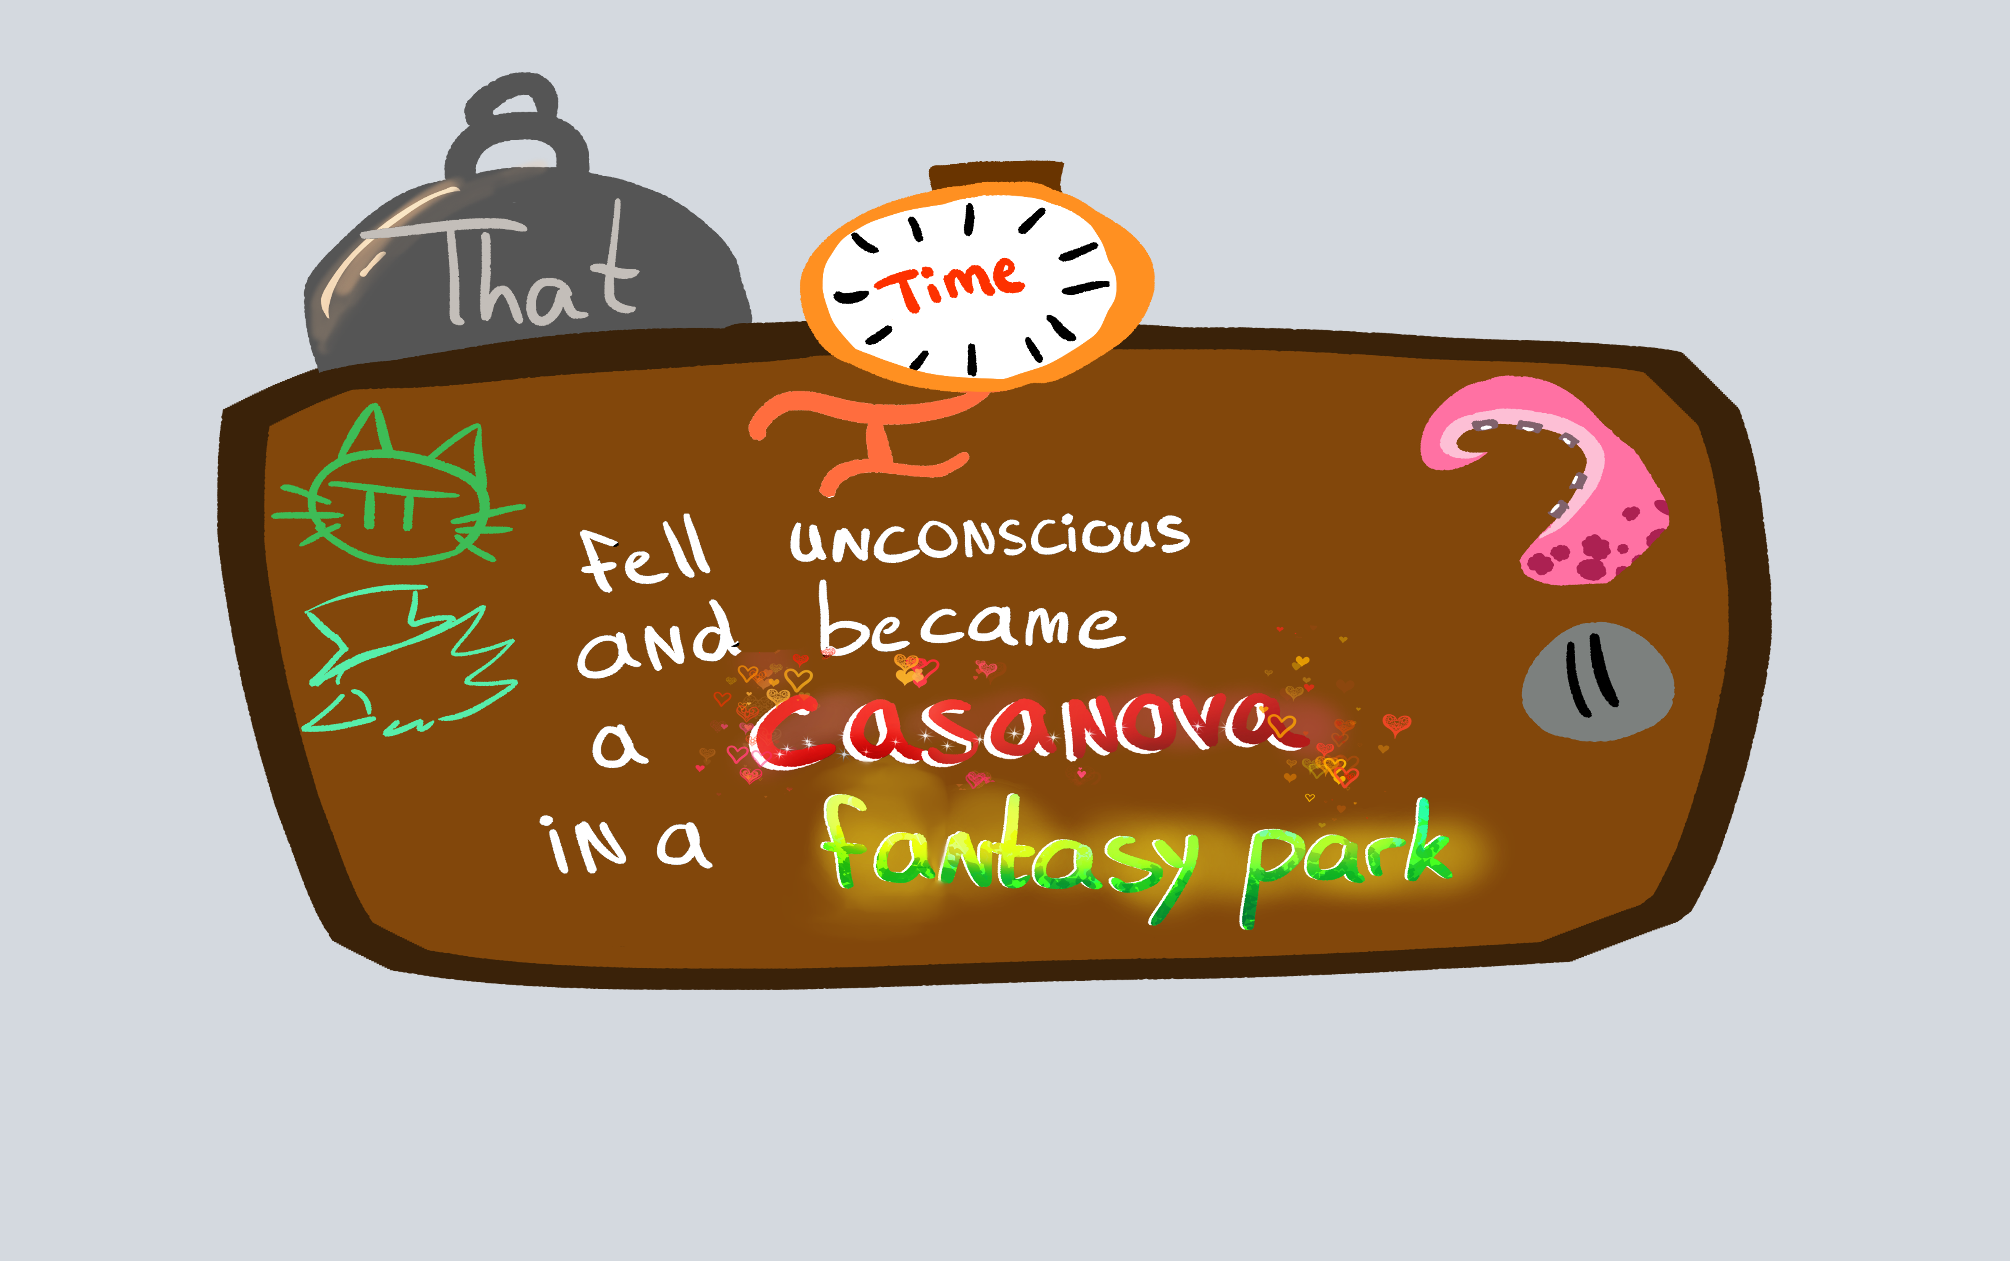 That Time
I
fell unconscious
and became
a casanova
in a fantasy park